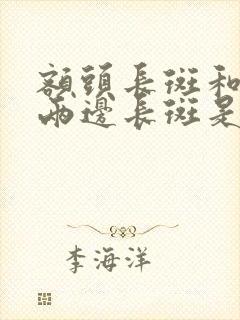 額頭長斑和
兩邊長斑是
李海洋